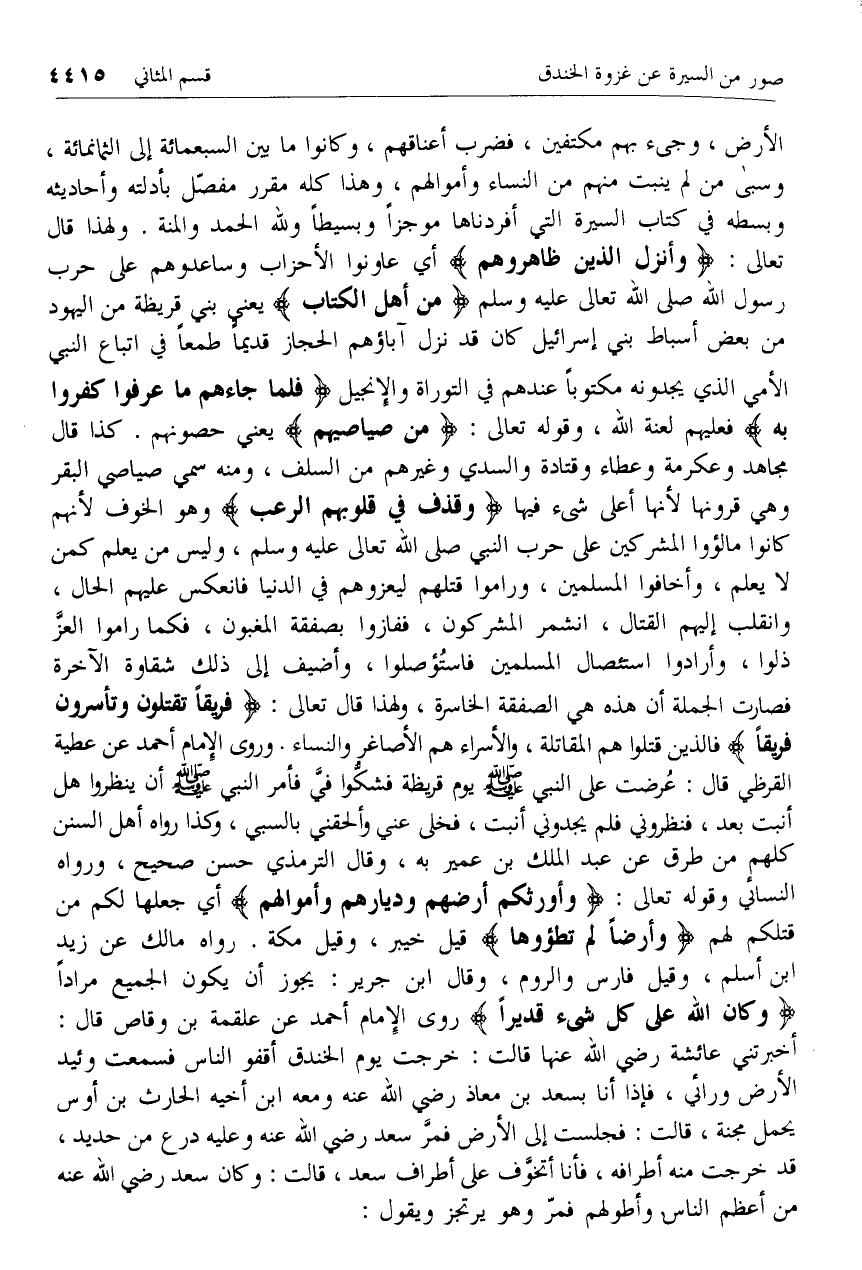 صور من السيرة عن غزوة الخندق قسم المثاني ٤٤١٥
الأرض ، وجيء بهم مكتفين ، فضرب أعناقهم ، وكانوا ما بين السبعمائة إلى الثمانمائة ،
وسبىٰ من لم ينبت منهم من النساء وأموالهم ، وهذا كله مقرر مفصّل بأدلته وأحاديثه
وبسطه في كتاب السيرة التي أفردناها موجزاً وبسيطاً ولله الحمد والمنة . ولهذا قال
تعالى : ﴿ وأنزل الذين ظاهروهم ﴾ أي عاونوا الأحزاب وساعدوهم على حرب
رسول الله صلى الله تعالى عليه وسلم ﴿ من أهل الكتاب ﴾ يعني بني قريظة من اليهود
من بعض أسباط بني إسرائيل كان قد نزل آباؤهم الحجاز قديماً طمعاً في اتباع النبي
الأمي الذي يجدونه مكتوباً عندهم في التوراة والإنجيل ﴿ فلما جاءهم ما عرفوا كفروا
به ﴾ فعليهم لعنة الله ، وقوله تعالى : ﴿ من صياصيهم ﴾ يعني حصونهم . كذا قال
مجاهد وعكرمة وعطاء وقتادة والسدي وغيرهم من السلف ، ومنه سمي صياصي البقر
وهي قرونها لأنها أعلى شيء فيها ﴿ وقذف في قلوبهم الرعب ﴾ وهو الخوف لأنهم
كانوا مالؤوا المشركين على حرب النبي صلى الله تعالى عليه وسلم ، وليس من يعلم كمن
لا يعلم ، وأخافوا المسلمين ، وراموا قتلهم ليعزوهم في الدنيا فانعكس عليهم الحال ،
وانقلب إليهم القتال ، انشمر المشركون ، ففازوا بصفقة المغبون ، فكما راموا العزَّ
ذلوا ، وأرادوا استئصال المسلمين فاستُؤصلوا ، وأضيف إلى ذلك شقاوة الآخرة
فصارت الجملة أن هذه هي الصفقة الخاسرة ، ولهذا قال تعالى : ﴿ فريقاً تقتلون وتأسرون
فريقاً ﴾ فالذين قتلوا هم المقاتلة ، والأسراء هم الأصاغر والنساء . وروى الإمام أحمد عن عطية
القرظي قال : عُرضت على النبي ﷺ يوم قريظة فشكُّوا فيَّ فأمر النبي ﷺ أن ينظروا هل
أنبت بعد ، فنظروني فلم يجدوني أنبت ، فخلى عني وألحقني بالسبي ، وكذا رواه أهل السنن
كلهم من طرق عن عبد الملك بن عمير به ، وقال الترمذي حسن صحيح ، ورواه
النسائي وقوله تعالى : ﴿ وأورثكم أرضهم وديارهم وأموالهم ﴾ أي جعلها لكم من
قتلكم لهم ﴿ وأرضاً لم تطؤوها ﴾ قيل خيبر ، وقيل مكة . رواه مالك عن زيد
ابن أسلم ، وقيل فارس والروم ، وقال ابن جرير : يجوز أن يكون الجميع مراداً
﴿ وكان الله على كل شيء قديراً ﴾ روى الإمام أحمد عن علقمة بن وقاص قال :
أخبرتني عائشة رضي الله عنها قالت : خرجت يوم الخندق أقفو الناس فسمعت وئيد
الأرض ورائي ، فإذا أنا بسعد بن معاذ رضي الله عنه ومعه ابن أخيه الحارث بن أوس
يحمل مجنة ، قالت : فجلست إلى الأرض فمرَّ سعد رضي الله عنه وعليه درع من حديد ،
قد خرجت منه أطرافه ، فأنا أتخوَّف على أطراف سعد ، قالت : وكان سعد رضي الله عنه
من أعظم الناس وأطولهم فمرّ وهو يرتجز ويقول :